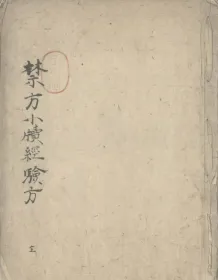 禁方小牘經驗方